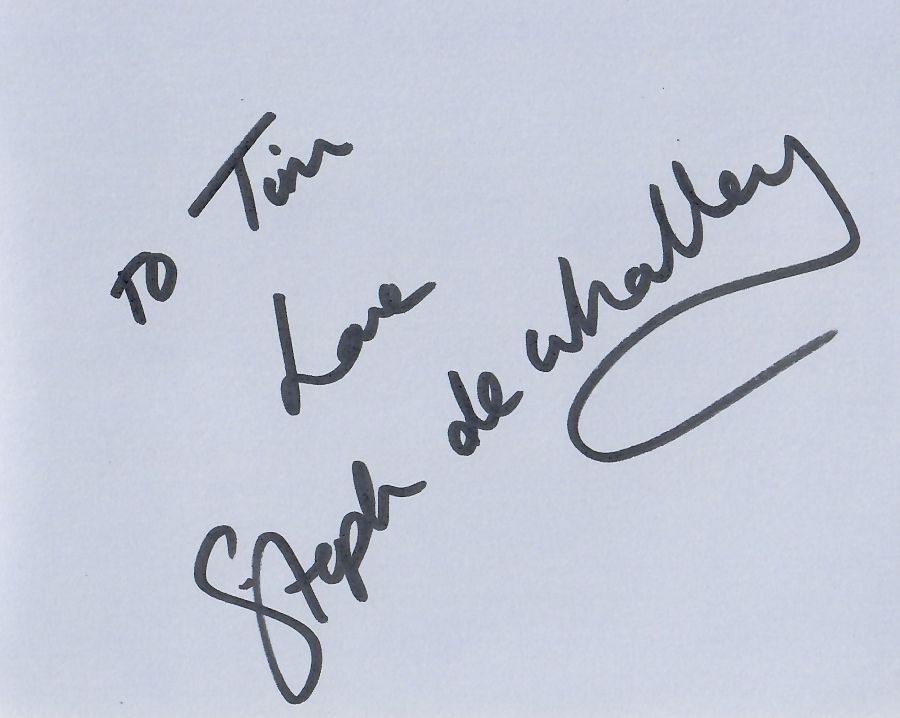 To Tim
Love
Steph de Whalley